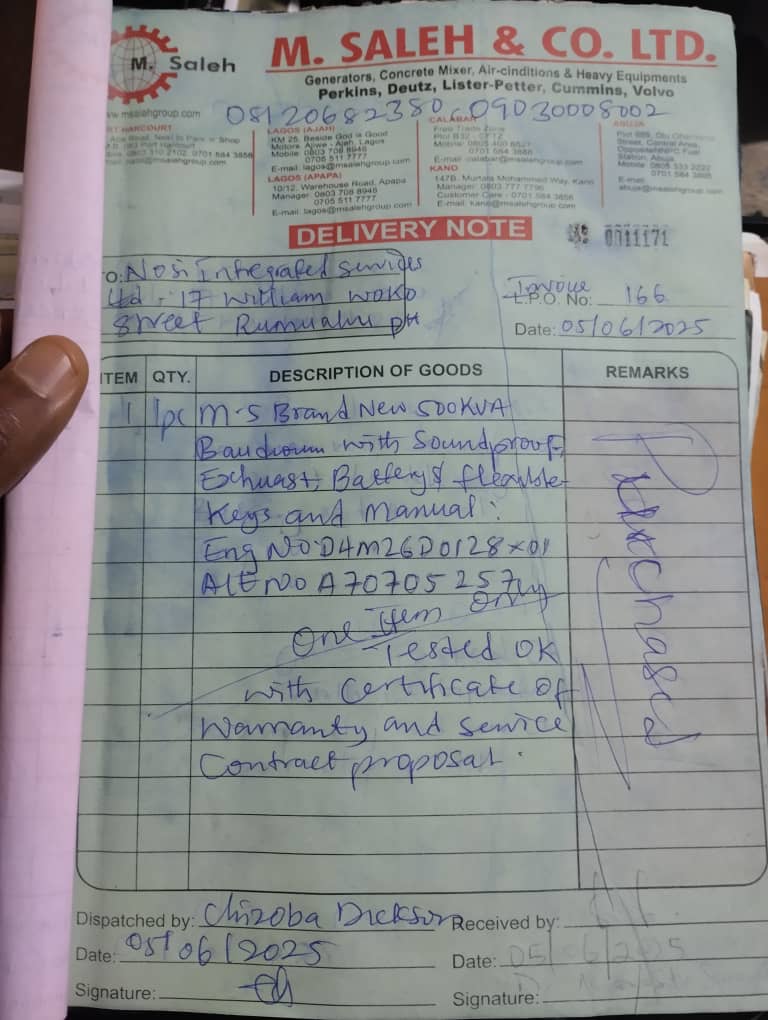 M. Saleh
M. SALEH & CO. LTD.
Generators, Concrete Mixer, Air-cinditions & Heavy Equipments
Perkins, Deutz, Lister-Petter, Cummins, Volvo
www.msalehgroup.com
08120682380, 09030008002
LAGOS (AJAH)
KM 25, Beside God is Good
Motors, Ajiwe - Ajah, Lagos
Mobile: 0803 708 8948
0705 511 7777
E-mail: lagos@msalehgroup.com
LAGOS (APAPA)
10/12, Warehouse Road, Apapa
Manager: 0803 708 8948
0705 511 7777
E-mail: lagos@msalehgroup.com
CALABAR
Free Trade Zone
E-mail: calabar@msalehgroup.com
KANO
147B, Murtala Mohammed Way, Kano
Manager: 0803 777 7796
Customer Care - 0701 584 3856
E-mail: kano@msalehgroup.com
ABUJA
Street, Central Area,
Station, Abuja
Mobile: 0805 333 2222
E-mail:
abuja@msalehgroup.com
DELIVERY NOTE
0011171
O: Nosi Integrated Services
Ltd. 17 William Woko
Street Rumualu PH
Invoice
L.P.O. No: 166
Date: 05/06/2025
ITEM QTY. DESCRIPTION OF GOODS REMARKS
1 1pc M.S Brand New 500KVA
Baudouin with Soundproof,
Exhuast, Battery & flexible
Keys and Manual:
Eng No D4M26D0128x01
ALT NO A70705257
One Item Only
Tested OK
with Certificate of
Warranty and Service
Contract proposal.
Purchased
Dispatched by: Chizoba Dickson Received by:
Date: 05/06/2025 Date: 05/06/2025
Signature: Signature: